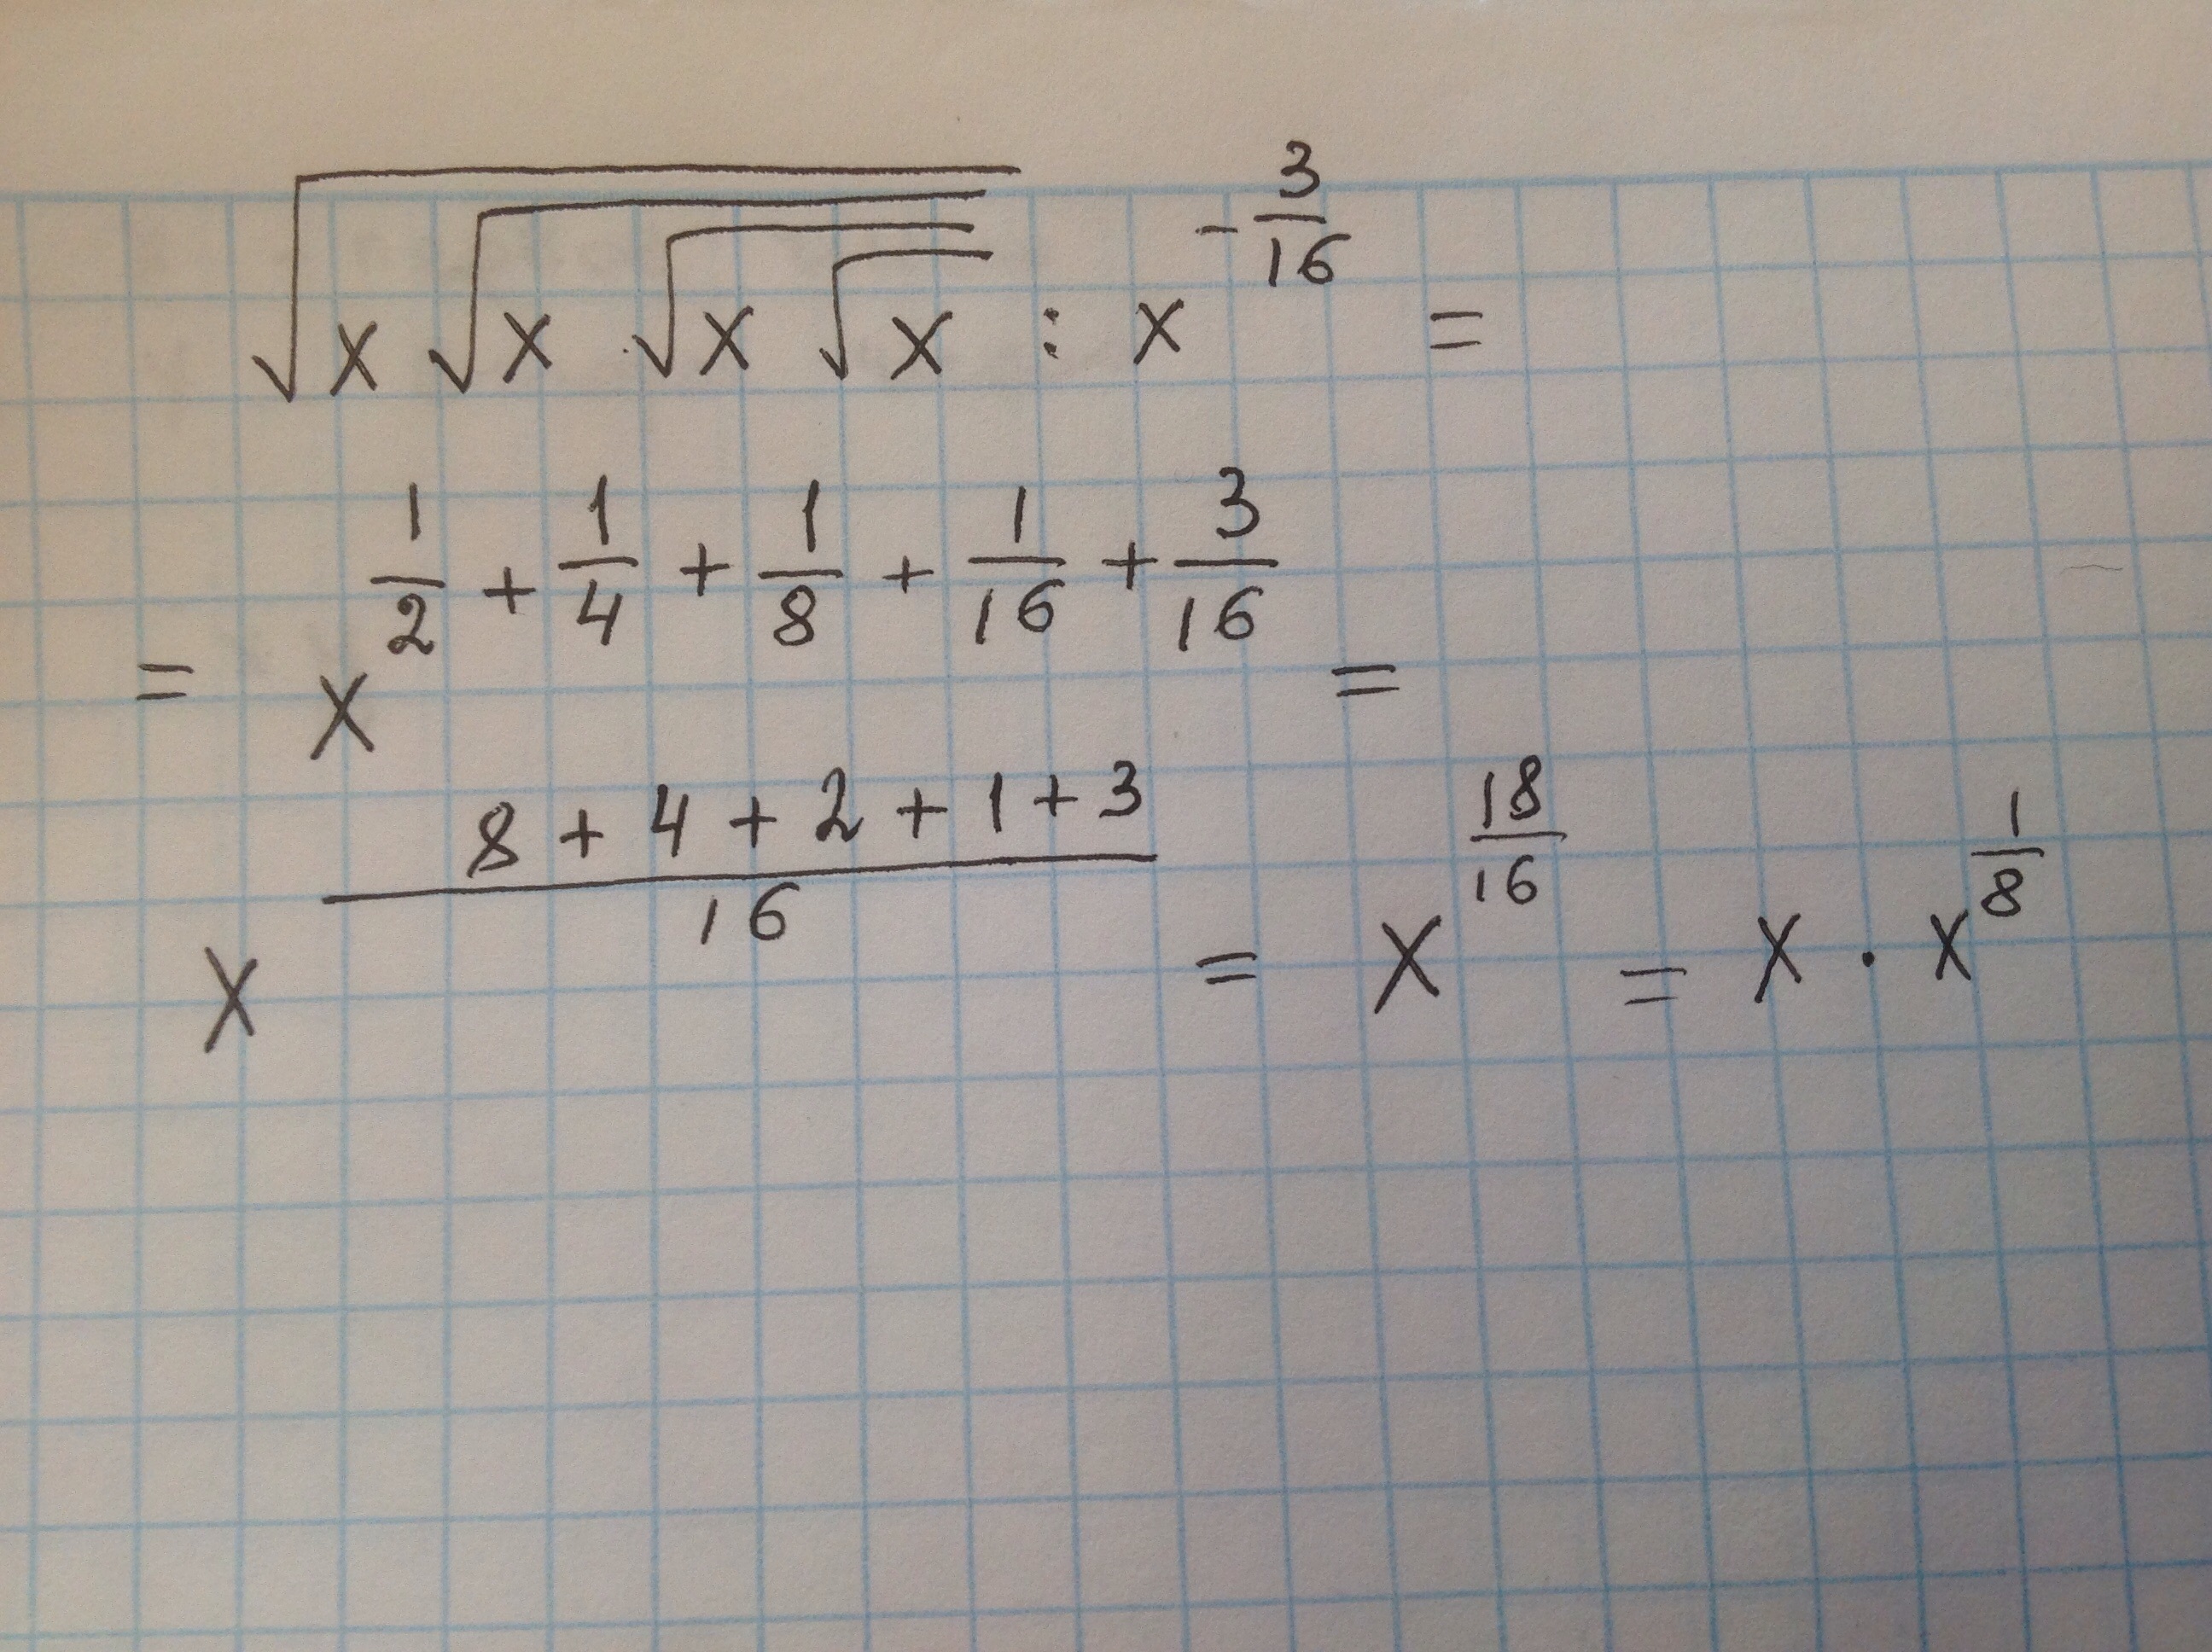 √(x√(x√(x√x))) : x^(-3/16) =
= x^(1/2 + 1/4 + 1/8 + 1/16 + 3/16) =
x^((8 + 4 + 2 + 1 + 3)/16) = x^(18/16) = x · x^(1/8)